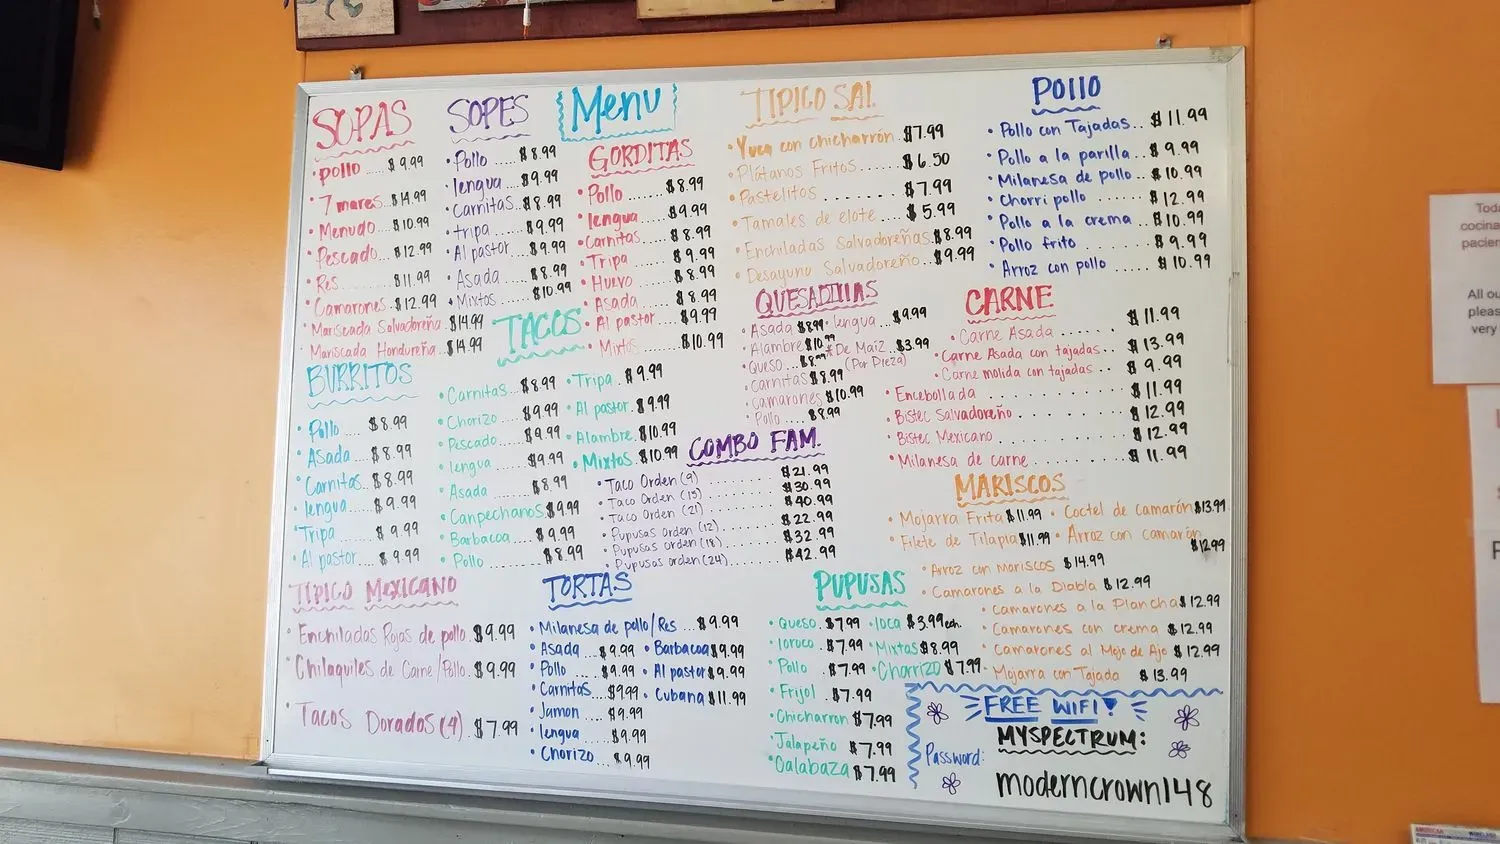 Menu
SOPAS
pollo ..... $9.99
7 mares... $14.99
Menudo .. $10.99
Pescado.. $12.99
Res ....... $11.99
Camarones. $12.99
Mariscada Salvadoreña. $14.99
Mariscada Hondureña.. $14.99
SOPES
Pollo ..... $8.99
lengua... $9.99
Carnitas.. $8.99
tripa ..... $9.99
Al pastor.. $9.99
Asada .... $8.99
Mixtos .... $10.99
GORDITAS
Pollo ....... $8.99
lengua...... $9.99
Carnitas.... $8.99
Tripa ....... $9.99
Huevo ..... $8.99
Asada ..... $8.99
Al pastor ... $9.99
Mixtos ...... $10.99
TIPICO SAL.
Yuca con chicharrón. $7.99
Plátanos Fritos..... $6.50
Pastelitos ........ $7.99
Tamales de elote .... $5.99
Enchiladas Salvadoreñas. $8.99
Desayuno Salvadoreño ... $9.99
POllO
Pollo con Tajadas... $11.99
Pollo a la parilla... $9.99
Milanesa de pollo.. $10.99
Chorri pollo ....... $12.99
Pollo a la crema ... $10.99
Pollo frito ........ $9.99
Arroz con pollo ..... $10.99
BURRITOS
Pollo .... $8.99
Asada ... $8.99
Carnitas.. $8.99
lengua.... $9.99
Tripa .... $9.99
Al pastor... $9.99
TACOS
Carnitas... $8.99
Chorizo .... $9.99
Pescado.... $9.99
lengua ..... $9.99
Asada ...... $8.99
Canpechanos. $9.99
Barbacoa ... $9.99
Pollo ....... $8.99
Tripa . $9.99
Al pastor. $9.99
Alambre. $10.99
Mixtos . $10.99
QUESADIllAS
Asada $8.99
Alambre $10.99
Queso ... $8.99
Carnitas $8.99
Camarones $10.99
Pollo .... $8.99
lengua ... $9.99
*De Maiz .. $3.99
(Por Pieza)
CARNE
Carne Asada ....... $11.99
Carne Asada con tajadas.. $13.99
Carne molida con tajadas.. $9.99
Encebollada ........... $11.99
Bistec Salvadoreño ........ $12.99
Bistec Mexicano ......... $12.99
Milanesa de carne ........ $11.99
COMBO FAM.
Taco Orden (9) ........ $21.99
Taco Orden (15) ....... $30.99
Taco Orden (21) ....... $40.99
Pupusas orden (12) ..... $22.99
Pupusas orden (18) ..... $32.99
Pupusas orden (24) ..... $42.99
MARISCOS
Mojarra Frita $11.99
Coctel de camarón $13.99
Filete de Tilapia $11.99
Arroz con camarón $12.99
Arroz con mariscos $14.99
Camarones a la Diabla $12.99
Camarones a la Plancha $12.99
Camarones con crema $12.99
Camarones al Mojo de Ajo $12.99
Mojarra con Tajada $13.99
TIPICO MEXICANO
Enchiladas Rojas de pollo. $9.99
Chilaquiles de Carne/Pollo. $9.99
Tacos Dorados (4). $7.99
TORTAS
Milanesa de pollo/Res ... $9.99
Asada ... $9.99
Pollo .... $9.99
Carnitas... $9.99
Jamon .... $9.99
lengua .... $9.99
Chorizo... $9.99
Barbacoa $9.99
Al pastor $9.99
Cubana $11.99
PUPUSAS
Queso . $7.99
loroco . $7.99
Pollo . $7.99
Frijol . $7.99
Chicharron $7.99
Jalapeño $7.99
Calabaza $7.99
loca $3.99 ech.
Mixtas $8.99
Chorrizo $7.99
FREE WIFI!
MYSPECTRUM:
Password:
moderncrown148
Toda
cocina
pacien
All ou
pleas
very